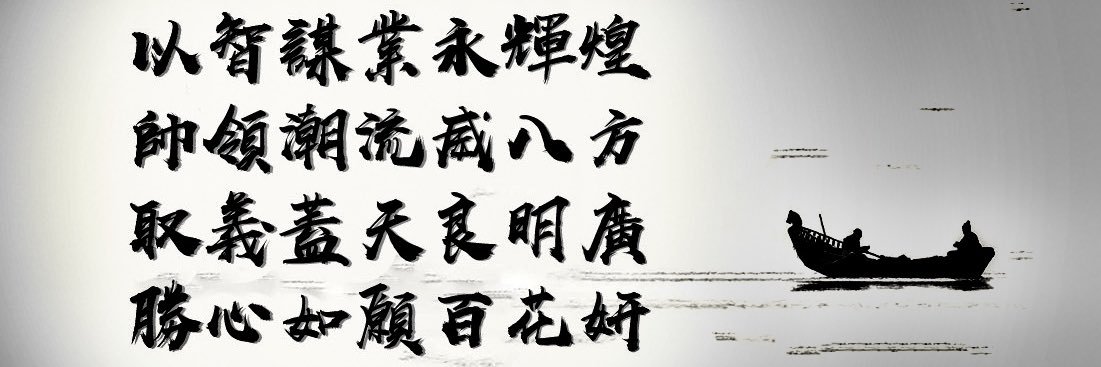 以智謀業永輝煌
帥領潮流威八方
取義蓋天良明廣
勝心如願百花妍